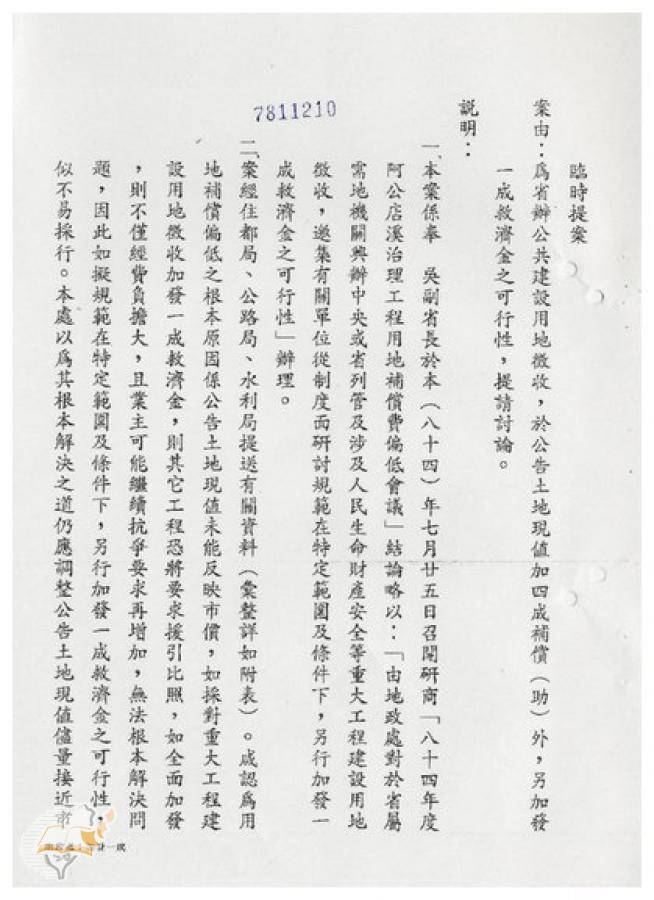 7811210
臨時提案
案由：為省辦公共建設用地徵收，於公告土地現值加四成補償（助）外，另加發
一成救濟金之可行性，提請討論。
説明：
一、本案係奉　吳副省長於本（八十四）年七月廿五日召開研商「八十四年度
阿公店溪治理工程用地補償費偏低會議」結論略以：「由地政處對於省屬
需地機關興辦中央或省列管及涉及人民生命財產安全等重大工程建設用地
徵收，邀集有關單位從制度面研討規範在特定範圍及條件下，另行加發一
成救濟金之可行性」辦理。
二、案經住都局、公路局、水利局提送有關資料（彙整詳如附表）。咸認為用
地補償偏低之根本原因係公告土地現值未能反映市價，如採對重大工程建
設用地徵收加發一成救濟金，則其它工程恐將要求援引比照，如全面加發
，則不僅經費負擔大，且業主可能繼續抗爭要求再增加，無法根本解決問
題，因此如擬規範在特定範圍及條件下，另行加發一成救濟金之可行性，
似不易採行。本處以為其根本解決之道仍應調整公告土地現值儘量接近市